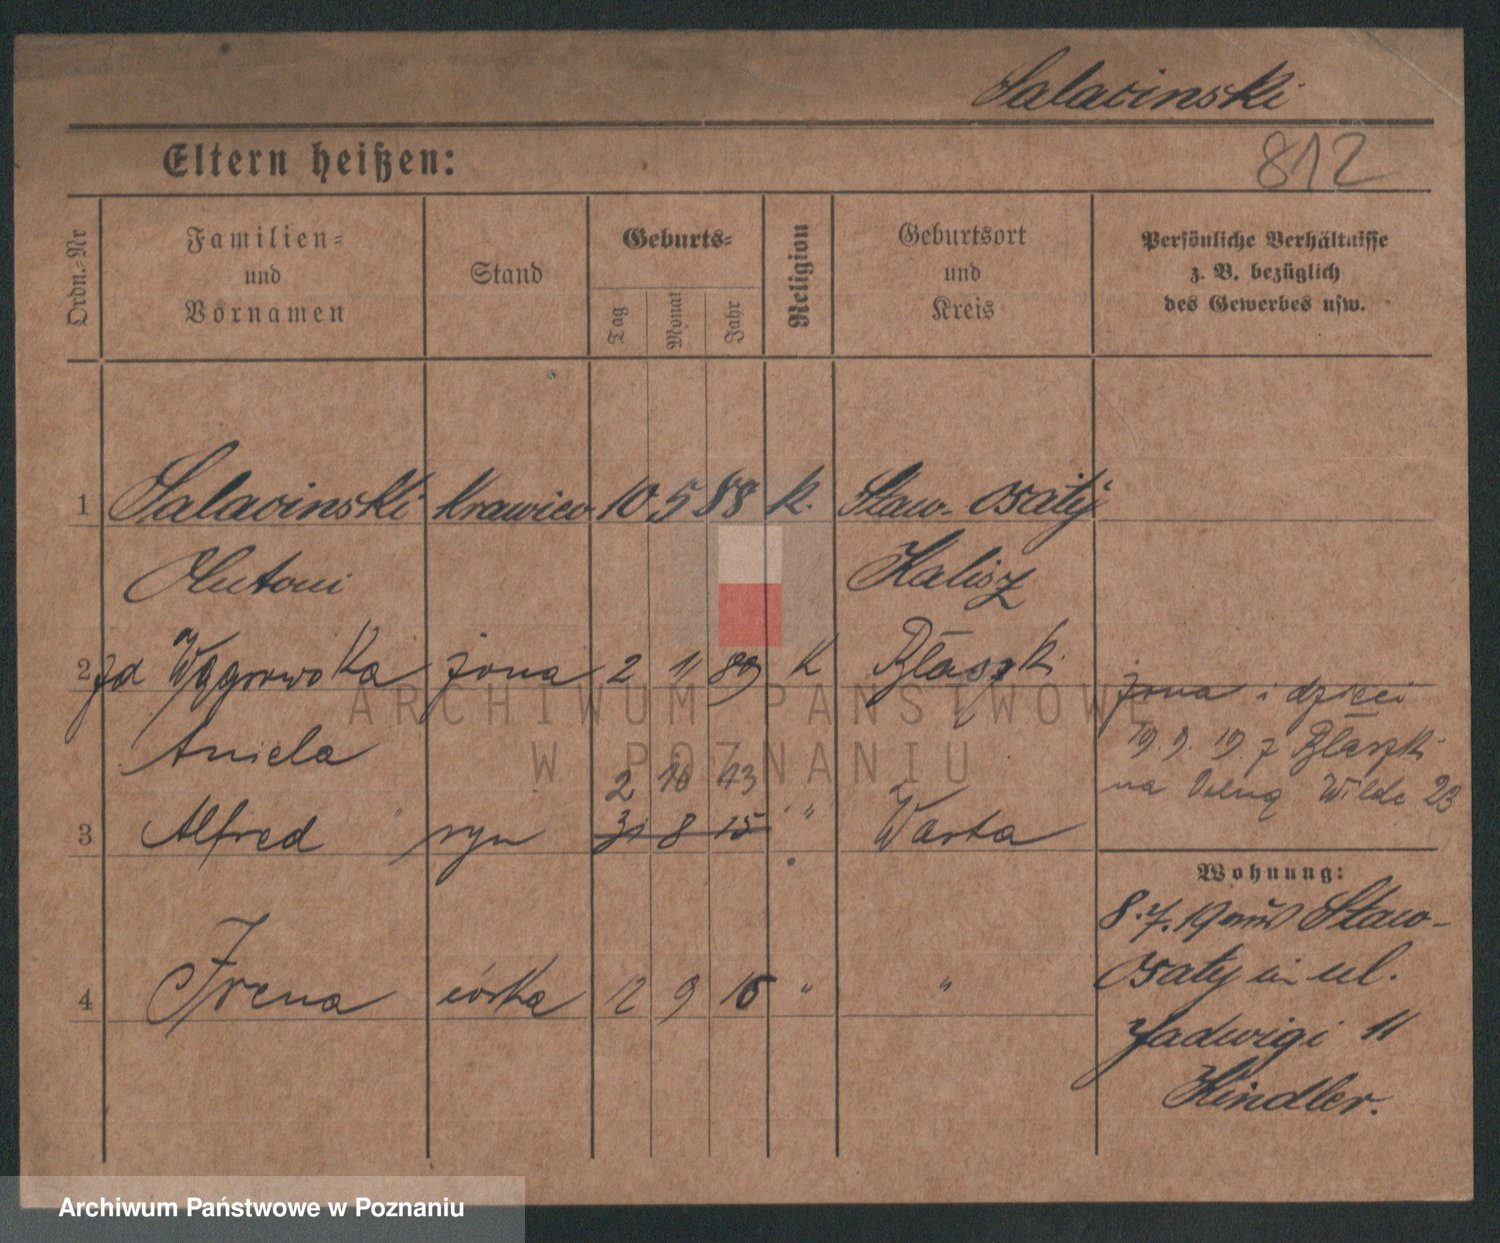 Salacinski
812
Eltern heißen:
Ordn.-Nr
Familien-
und
Vornamen
Stand
Geburts-
Tag
Monat
Jahr
Religion
Geburtsort
und
Kreis
Persönliche Verhältnisse
z. B. bezüglich
des Gewerbes usw.
1 Salacinski krawiec 10 5 88 k. Staw-
Antoni Kalisz
2 Wągrowska żona 2 11 89 k Błaszki
żona i dzieci
Aniela
19. 9. 19. z Błaszki
2 10 43
na Dolną Wilde 23
3 Alfred syn 31 8 15 " " Warta
Wohnung:
8.7.19 Staw-
4 Irena córka 12 9 16 " "
ul.
Jadwigi 11
Hindler.
ARCHIWUM PAŃSTWOWE
W POZNANIU
Archiwum Państwowe w Poznaniu